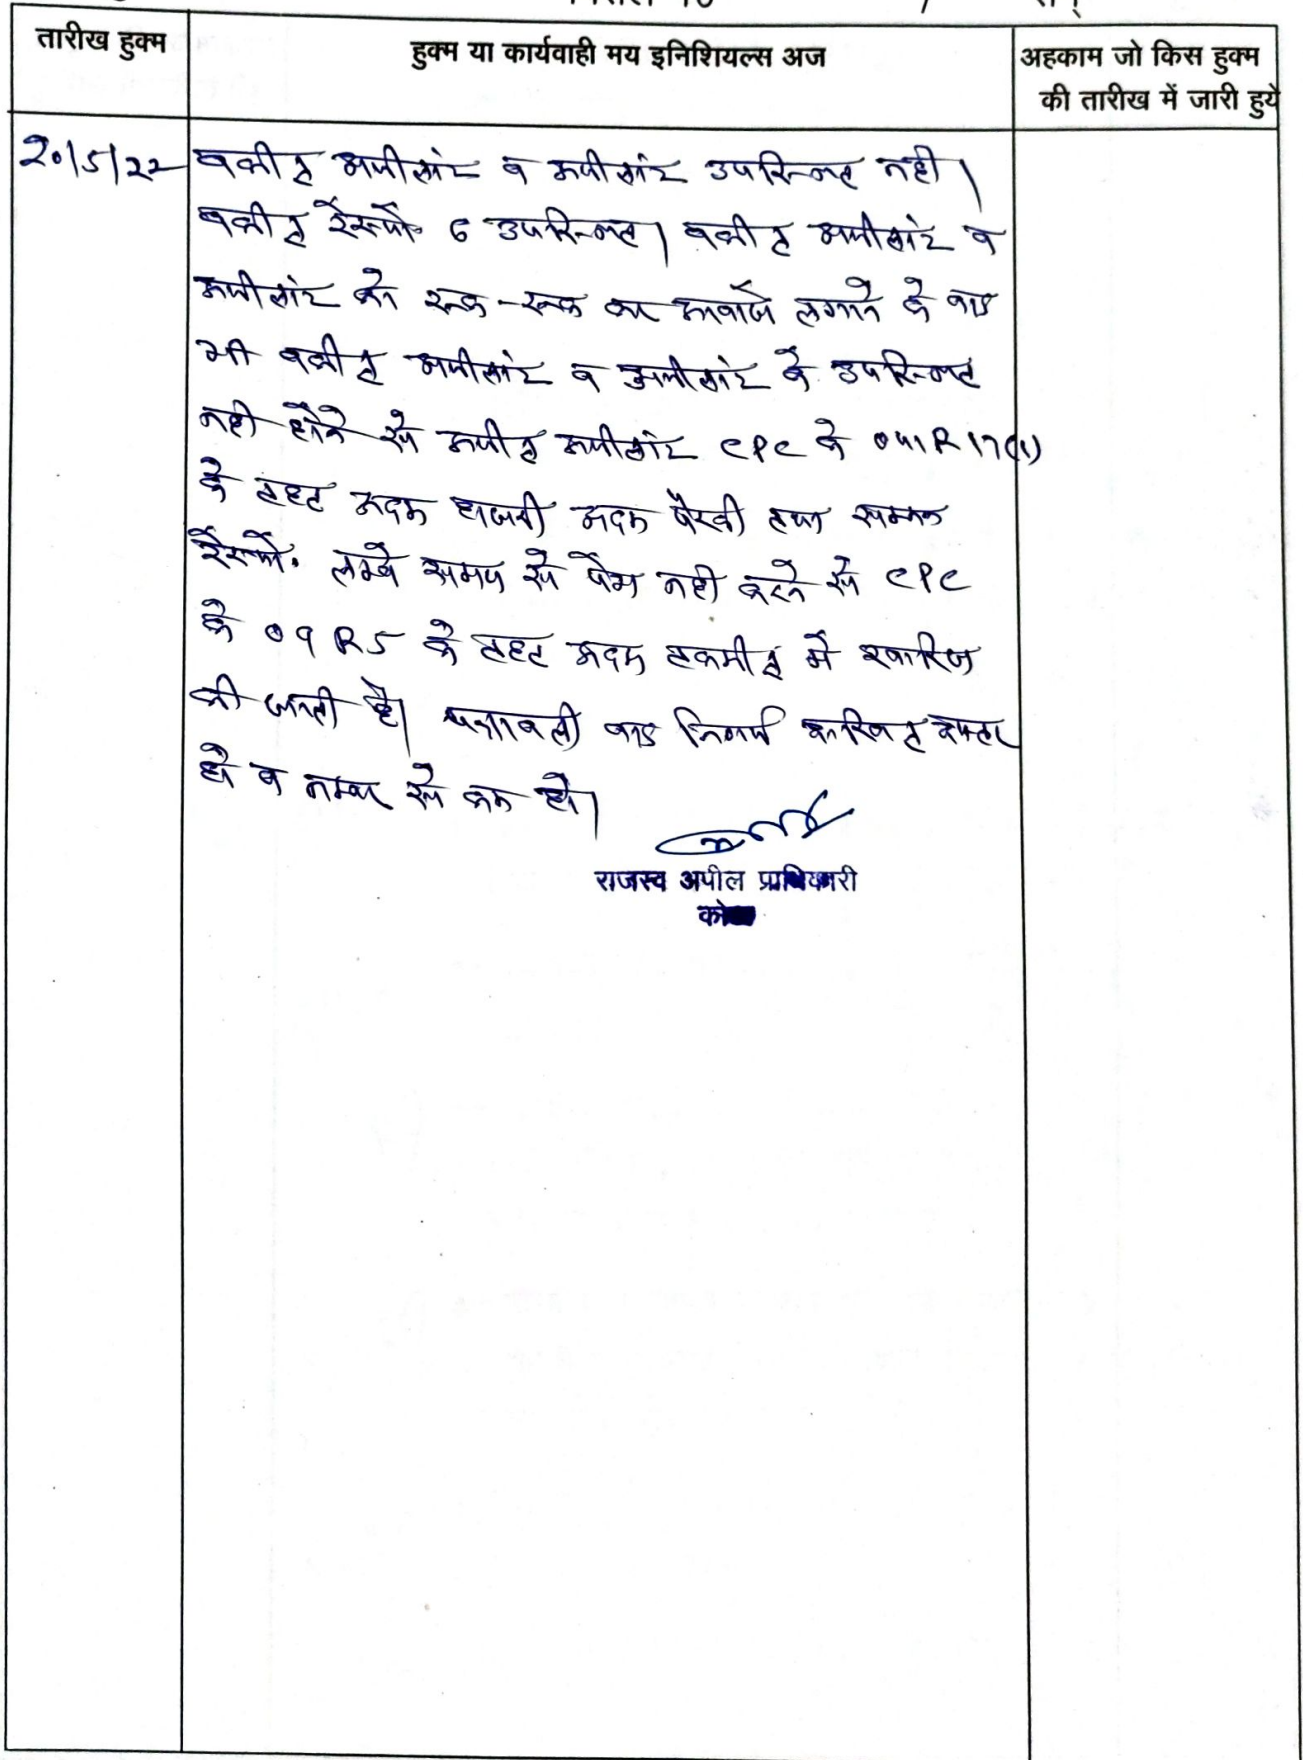 तारीख हुक्म
हुक्म या कार्यवाही मय इनिशियल्स अज
अहकाम जो किस हुक्म
की तारीख में जारी हुये
20/5/22
वकील अपीलांट व अपीलांट उपस्थित नही।
वकील रेस्पो. 6 उपस्थित। वकील अपीलांट व
अपीलांट को रूक-रूक कर आवाजे लगाने के बाद
भी वकील अपीलांट व अपीलांट के उपस्थित
नही होने से अपील अपीलांट CPC के O41R17(1)
के तहत अदम हाजरी अदम पैरवी तथा सम्मन
रेस्पो. लम्बे समय से पेश नही करने से CPC
के O9R5 के तहत अदम तकमील में खारिज
की जाती है। पत्रावली बाद निर्णय दाखिल दफ्तर
हो व नम्बर से कम हो।
राजस्व अपील प्राधिकारी